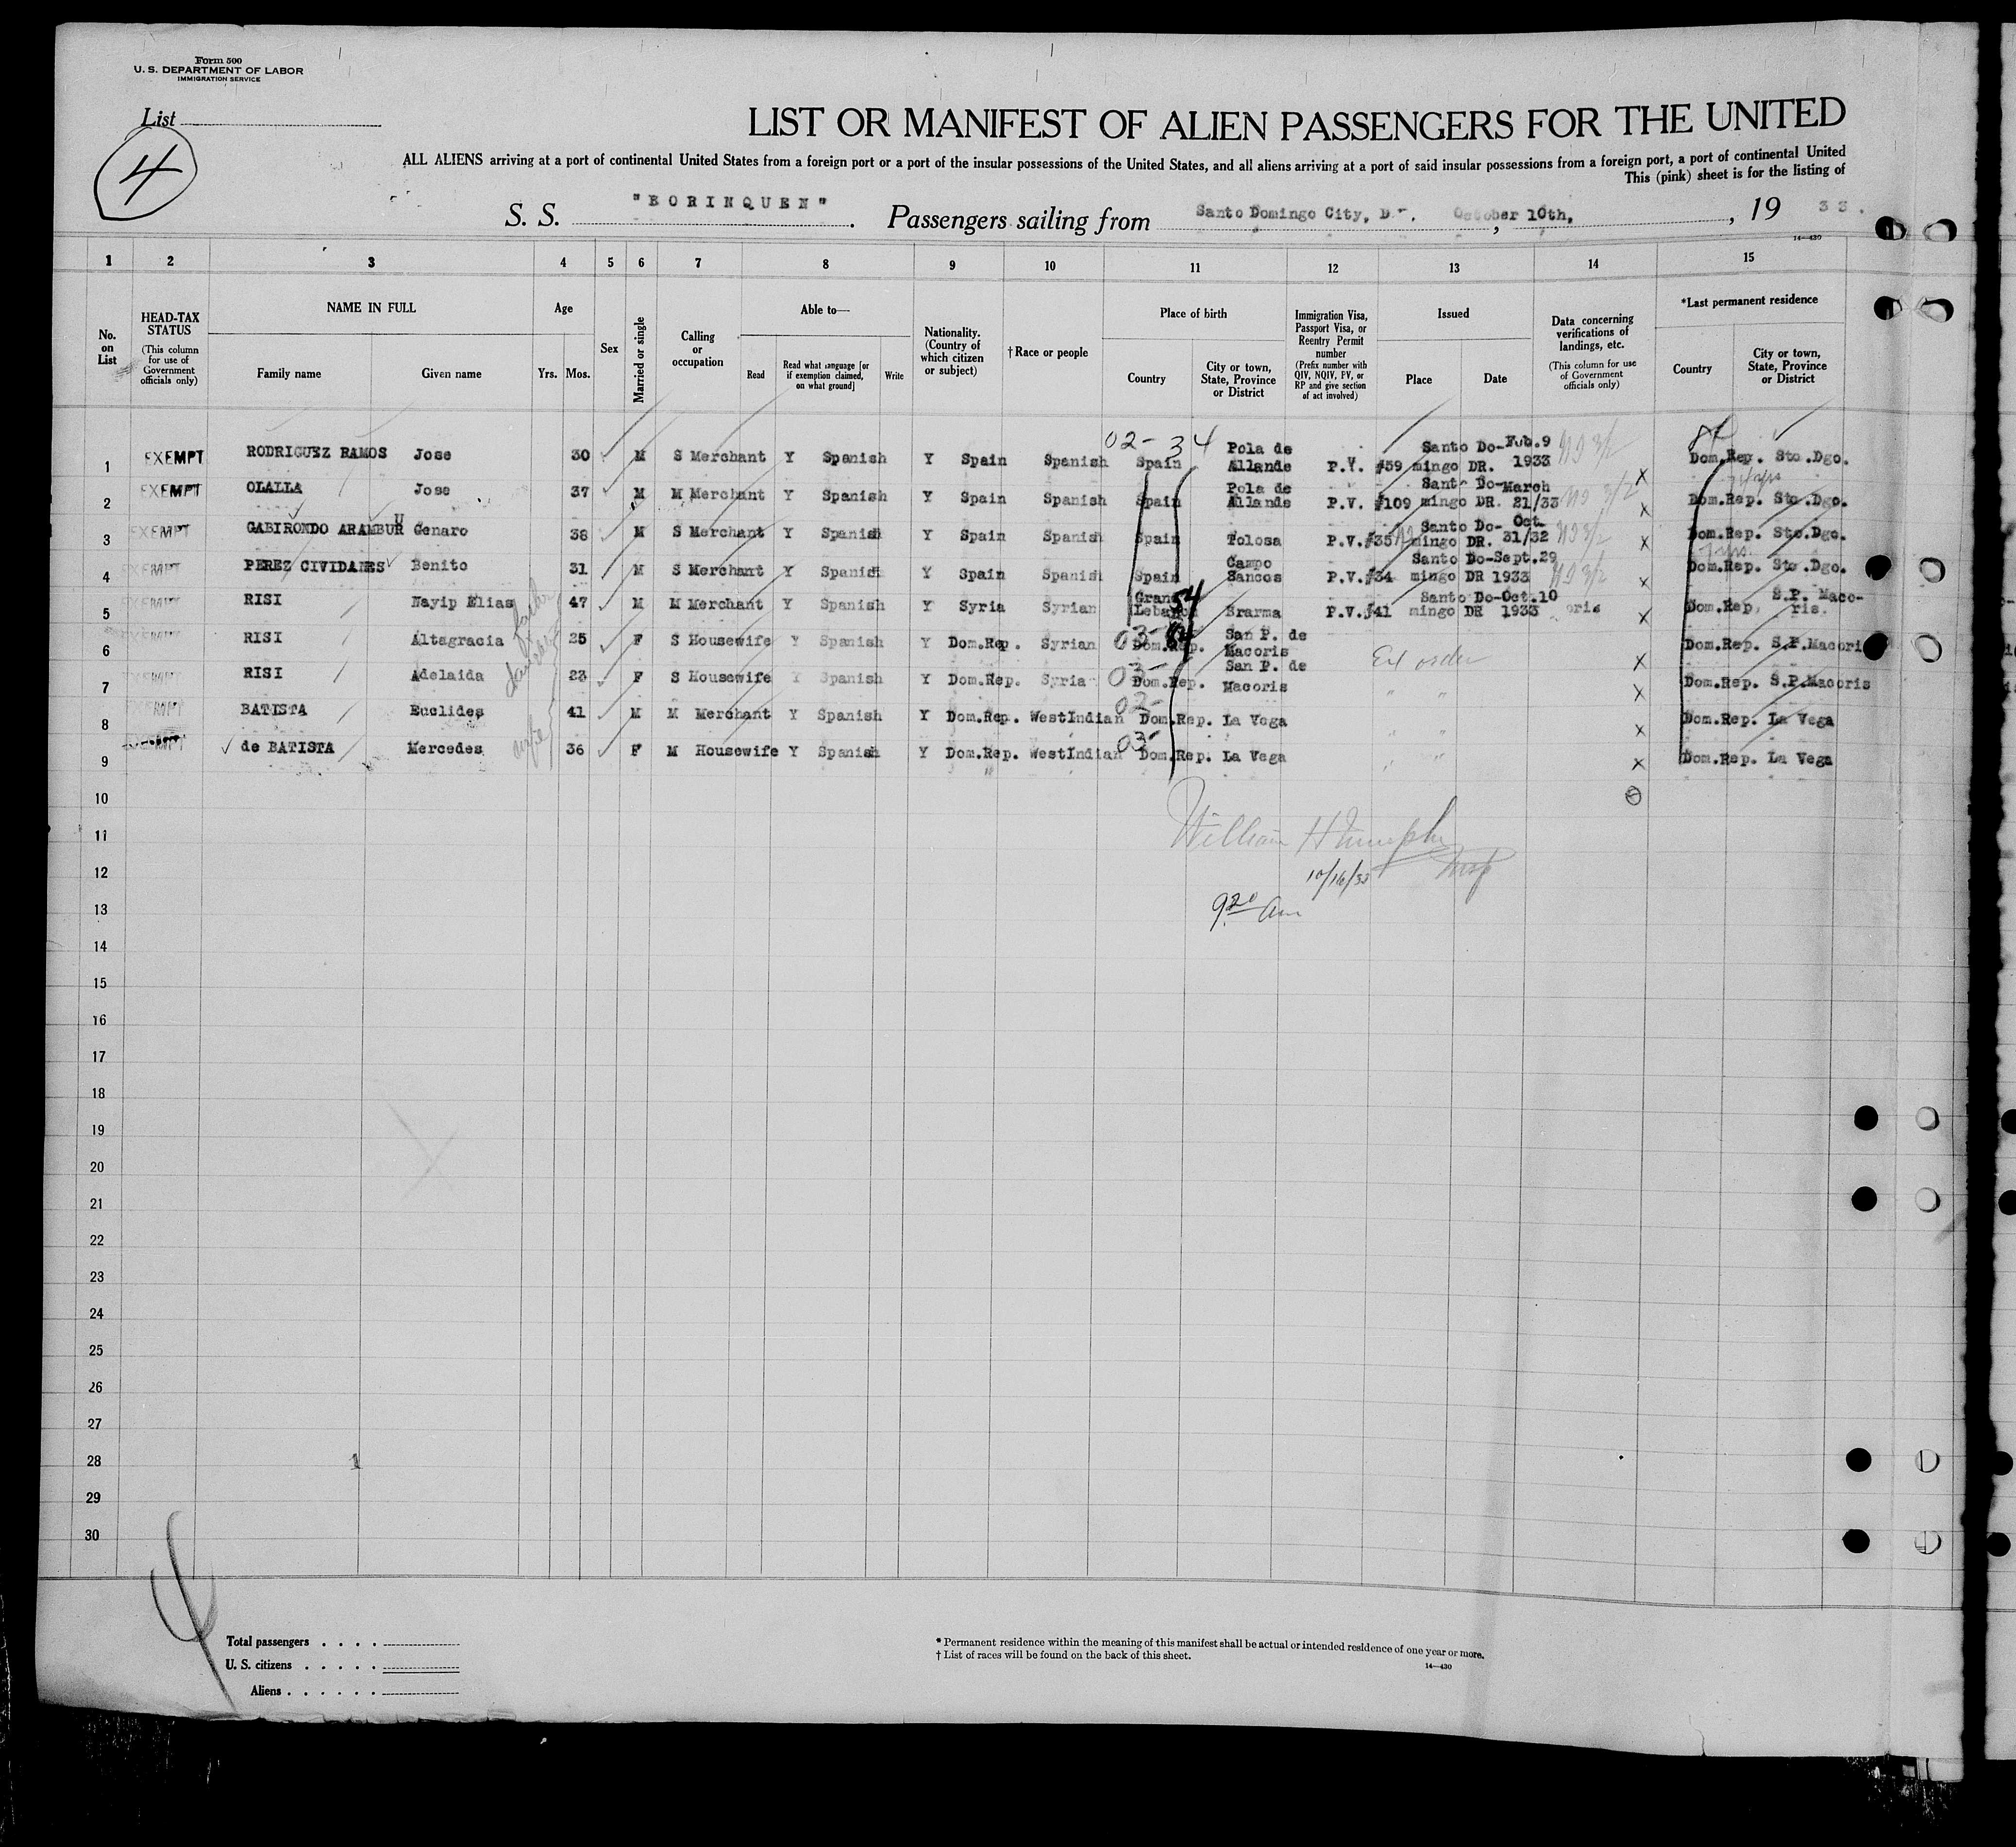 Form 500
U. S. DEPARTMENT OF LABOR
IMMIGRATION SERVICE
List
4
LIST OR MANIFEST OF ALIEN PASSENGERS FOR THE UNITED
ALL ALIENS arriving at a port of continental United States from a foreign port or a port of the insular possessions of the United States, and all aliens arriving at a port of said insular possessions from a foreign port, a port of continental United
This (pink) sheet is for the listing of
S. S. "BORINQUEN". Passengers sailing from Santo Domingo City, October 10th, , 19 33.
14—430
1 2 3 4 5 6 7 8 9 10 11 12 13 14 15
No. on List
HEAD-TAX STATUS (This column for use of Government officials only)
NAME IN FULL
Family name Given name
Age
Yrs. Mos.
Sex
Married or single
Calling or occupation
Able to—
Read Read what language [or if exemption claimed, on what ground] Write
Nationality. (Country of which citizen or subject)
†Race or people
Place of birth
Country City or town, State, Province or District
Immigration Visa, Passport Visa, or Reentry Permit number (Prefix number with QIV, NQIV, PV, or RP and give section of act involved)
Issued
Place Date
Data concerning verifications of landings, etc. (This column for use of Government officials only)
*Last permanent residence
Country City or town, State, Province or District
02- 34
1 EXEMPT RODRIGUEZ RAMOS Jose 30 M S Merchant Y Spanish Y Spain Spanish Spain Pola de Allande P.V. #59 Santo Domingo DR. Feb.9 1933 Dom.Rep. Sto.Dgo.
2 EXEMPT OLALLA Jose 37 M M Merchant Y Spanish Y Spain Spanish Spain Pola de Allande P.V. #109 Santo Domingo DR. March 21/33 Dom.Rep. Sto.Dgo.
3 EXEMPT GABIRONDO ARAMBURU Genaro 38 M S Merchant Y Spanish Y Spain Spanish Spain Tolosa P.V.#35 Santo Domingo DR. Oct. 31/32 Dom.Rep. Sto.Dgo.
4 EXEMPT PEREZ CIVIDANES Benito 31 M S Merchant Y Spanish Y Spain Spanish Spain Campo Sancos P.V.#34 Santo Domingo DR Sept.29 1933 Dom.Rep. Sto.Dgo.
5 EXEMPT RISI Nayip Elias father 47 M M Merchant Y Spanish Y Syria Syrian Grand Lebanon 54 Brarma P.V.#41 Santo Domingo DR Oct.10 1933 oris Dom.Rep. S.P. Macoris.
6 EXEMPT RISI Altagracia 25 F S Housewife Y Spanish Y Dom.Rep. Syrian 03- Dom.Rep. San P. de Macoris Ex order Dom.Rep. S.P.Macoris
7 EXEMPT RISI Adelaida 23 F S Housewife Y Spanish Y Dom.Rep. Syria 03- Dom.Rep. San P. de Macoris " " Dom.Rep. S.P.Macoris
8 EXEMPT BATISTA Euclides 41 M M Merchant Y Spanish Y Dom.Rep. WestIndian 02- Dom.Rep. La Vega " " Dom.Rep. La Vega
9 de BATISTA Mercedes wife 36 F M Housewife Y Spanish Y Dom.Rep. WestIndian 03- Dom.Rep. La Vega " " Dom.Rep. La Vega
10
11 William H
12 10/16/33 Insp
13 9.20 am
14
15
16
17
18
19
20
21
22
23
24
25
26
27
28 1
29
30
Total passengers . . . .
U. S. citizens . . . . .
Aliens . . . . . .
* Permanent residence within the meaning of this manifest shall be actual or intended residence of one year or more.
† List of races will be found on the back of this sheet.
14—430